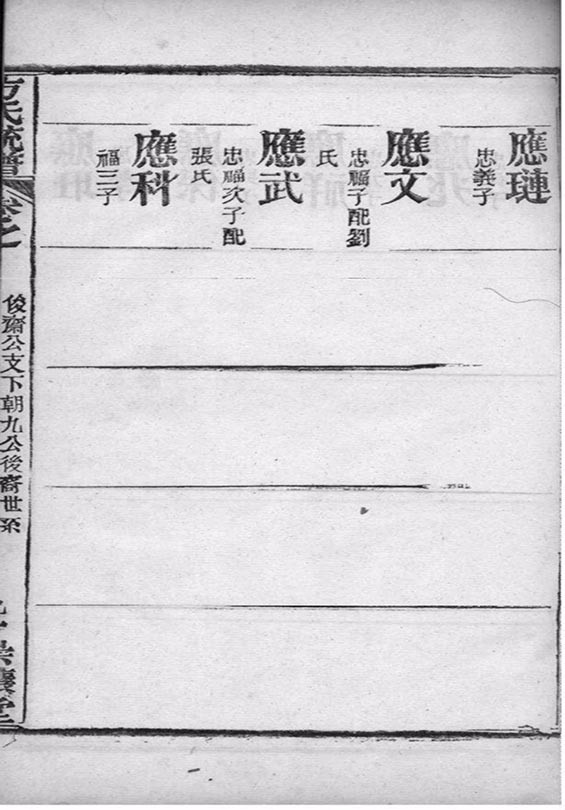 應璉
忠義子
應文
忠福子配劉
氏
應武
忠福次子配
張氏
應科
福三子
方氏統譜
卷之
俊齋公支下朝九公後裔世系